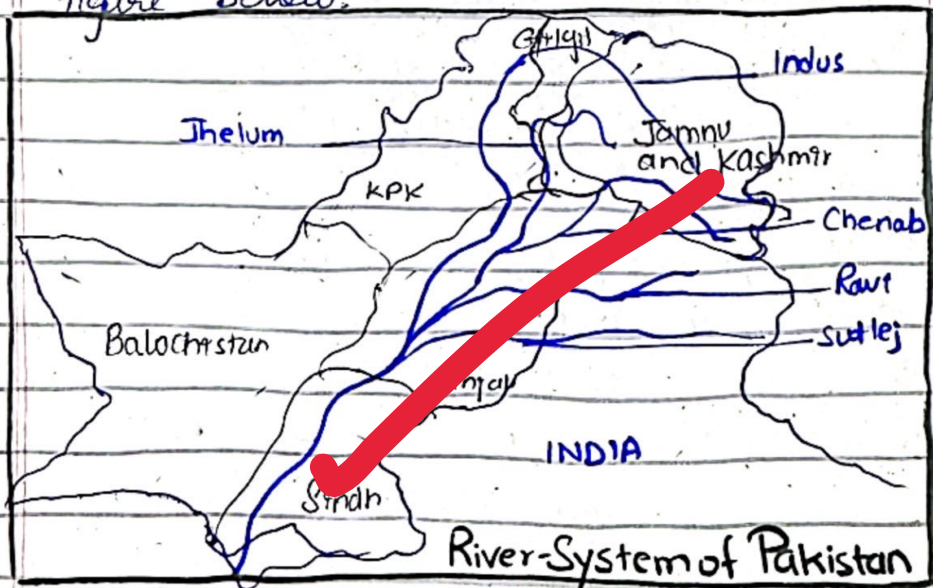 figure below.
Gilgit
Indus
Jhelum
Jammu
and Kashmir
KPK
Chenab
Ravi
Sutlej
Balochistan
INDIA
Sindh
River-System of Pakistan